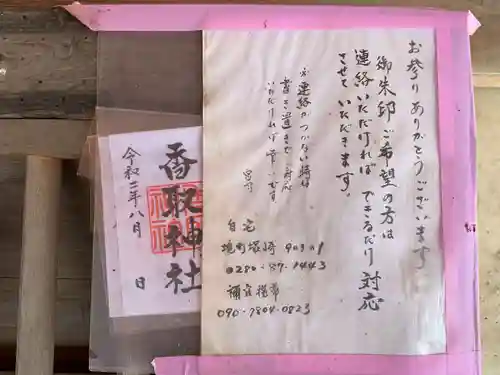 お参りありがとうございます
御朱印ご希望の方は
連絡いただければできるだけ対応
させていただきます。
※連絡がつかない時は
書き置きにて対応
いただければ幸いです
宮司
自宅
境町塚崎
0280-87-1443
090-7804-0823
香取神社
令和二年八月
日